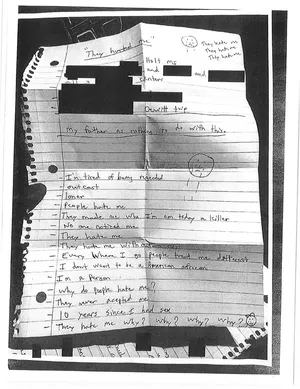 "They hunted me"
They hate me
They hate me
They hate me
Holt MS
and and
DeWitt trip
My father as nothing to do with this.
I'm tired of being
outcast
loner
People hate me
They made me who I'm am today a killer
No one noticed me
They hate me
They hate me without
Every Where I go people treat me different
I don't want to be a
I'm a Person
Why do people hate me?
They never acepted me
10 years since I had sex
They hate me why? why? why? why?